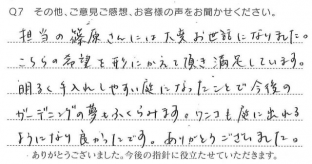 Q7 その他、ご意見ご感想、お客様の声をお聞かせください。
担当の篠原さんには大変お世話になりました。
こちらの希望を形にかえて頂き満足しています。
明るく手入れしやすい庭になったことで今後の
ガーデニングの夢もふくらみます。ワンコも庭に出れる
ようになり良かったです。ありがとうございました。
ありがとうございました。今後の指針に役立たせていただきます。